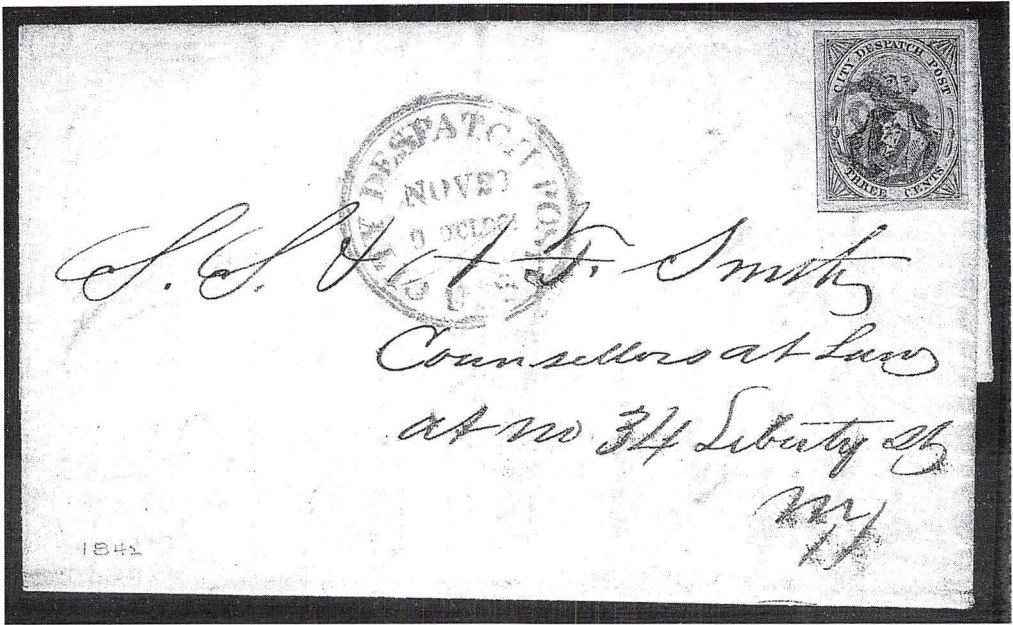 CITY DESPATCH POST
THREE CENTS
CITY DESPATCH POST
NOV 23
O'CLOCK
U.S.
Smith
Counsellors at Law
at no 34 Liberty St
NY
1842